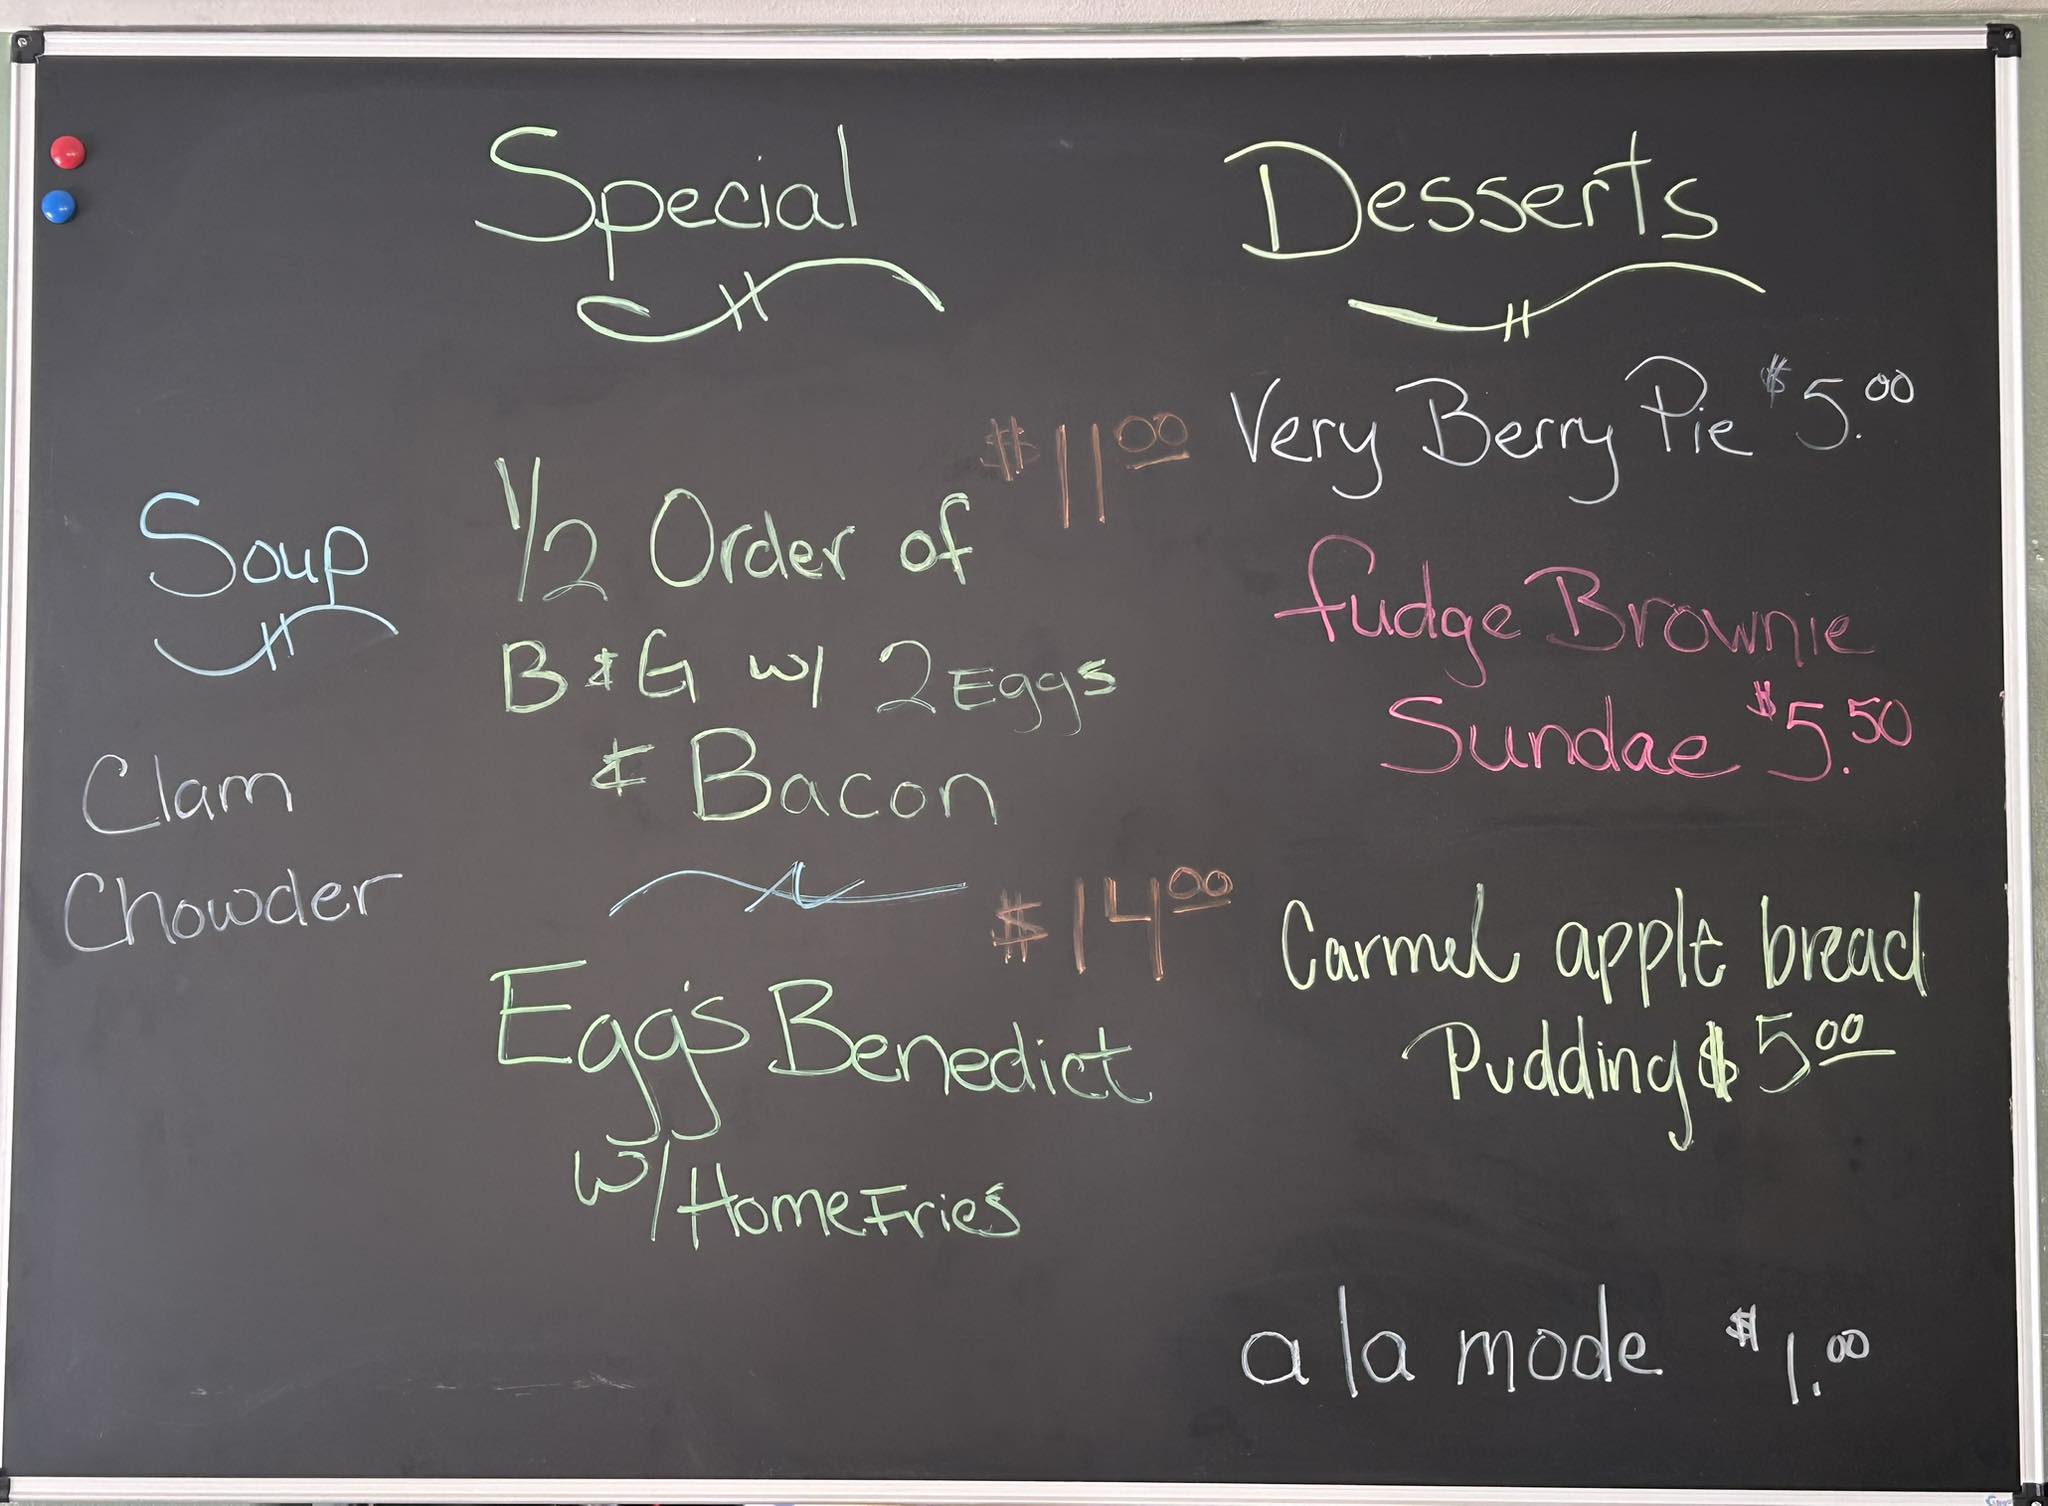 Special
$11.00
1/2 Order of
B & G w/ 2 Eggs
& Bacon
$14.00
Egg's Benedict
w/ Home Fries
Soup
Clam
Chowder
Desserts
Very Berry Pie $5.00
fudge Brownie
Sundae $5.50
Carmel apple bread
Pudding $5.00
a la mode $1.00